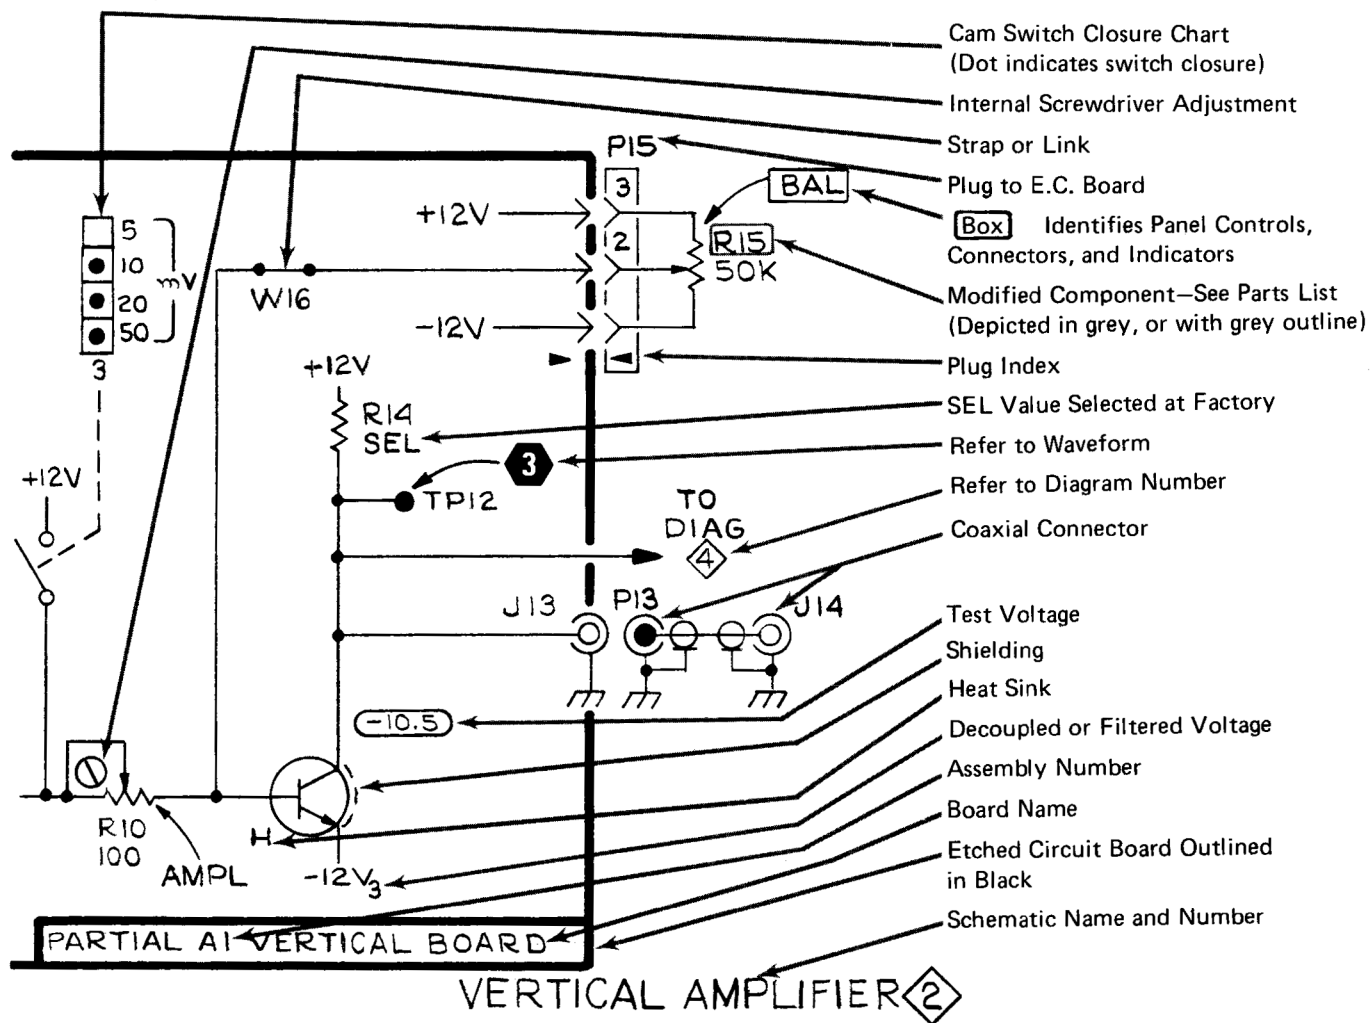 Cam Switch Closure Chart
(Dot indicates switch closure)
Internal Screwdriver Adjustment
Strap or Link
Plug to E.C. Board
Box Identifies Panel Controls,
Connectors, and Indicators
Modified Component—See Parts List
(Depicted in grey, or with grey outline)
Plug Index
SEL Value Selected at Factory
Refer to Waveform
Refer to Diagram Number
Coaxial Connector
Test Voltage
Shielding
Heat Sink
Decoupled or Filtered Voltage
Assembly Number
Board Name
Etched Circuit Board Outlined
in Black
Schematic Name and Number
P15
3
BAL
+12V
2
R15
50K
-12V
5
10
20
50
mV
3
W16
+12V
R14
SEL
3
TP12
+12V
TO
DIAG
4
J13
P13
J14
-10.5
R10
100
AMPL
H
-12V3
PARTIAL A1 VERTICAL BOARD
VERTICAL AMPLIFIER 2